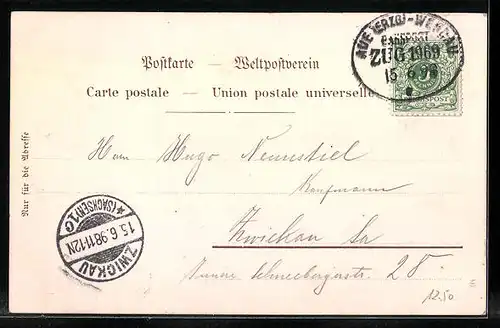 Postkarte — Weltpostverein
Carte postale — Union postale universelle
AUE (ERZG)-WERDAU
BAHNPOST
ZUG 1969
15 6 98
Nur für die Adresse
Herrn Hugo Neunstiel
Kaufmann
Zwickau Sa
Innere Schneebergerstr. 28.
ZWICKAU
15.6.98.11-12N
*(SACHSEN)1c
12.50